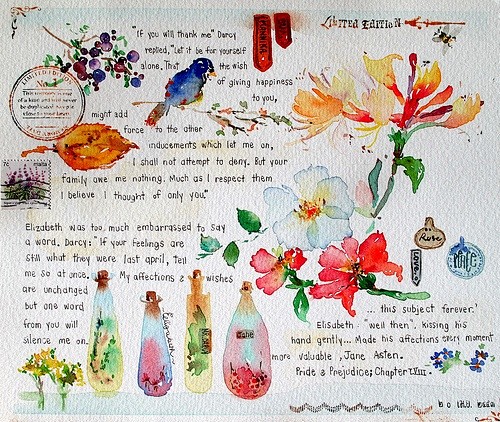 LIMITED EDITION
"If you will thank me" Darcy
replied, "Let it be for yourself
alone. That the wish
of giving happiness
to you,
might add
force to the other
inducements which let me on,
I shall not attempt to deny. But your
family owe me nothing. Much as I respect them
I believe I thought of only you."
LIMITED EDITION
This memory is one
of a kind and will never
be duplicated. Keep it
close to your heart.
7c malta
Elizabeth was too much embarrassed to say
a word. Darcy: "If your feelings are
still what they were last April, tell
me so at once. My affections & wishes
are unchanged
but one word
from you will
silence me on
... this subject forever.'
Elisabeth: "well then". Kissing his
hand gently... Made his affections every moment
more valuable, Jane Asten.
Pride & Prejudice; Chapter LVIII.
Rose
Love